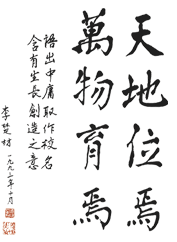 天地位焉
萬物育焉
語出中庸取作校名
含有生長創造之意
李楚材 一九九二年十月